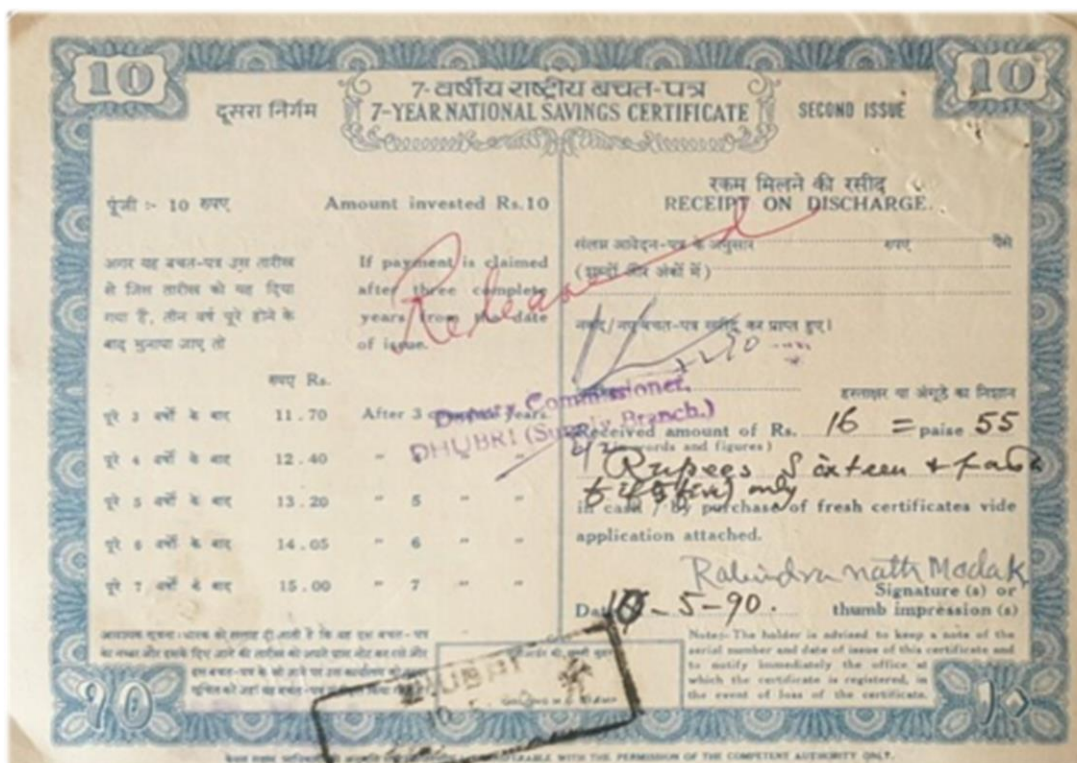 10
10
7-वर्षीय राष्ट्रीय बचत-पत्र
दूसरा निर्गम
7-YEAR NATIONAL SAVINGS CERTIFICATE
SECOND ISSUE
पूंजी :- 10 रुपए
Amount invested Rs.10
अगर यह बचत-पत्र उस तारीख
से जिस तारीख को यह दिया
गया है, तीन वर्ष पूरे होने के
बाद भुनाया जाए तो
If payment is claimed
after three complete
years from the date
of issue.
Released
रुपए Rs.
पूरे 3 वर्षों के बाद 11.70 After 3 complete years
पूरे 4 वर्षों के बाद 12.40 " " "
पूरे 5 वर्षों के बाद 13.20 " 5 " "
पूरे 6 वर्षों के बाद 14.05 " 6 " "
पूरे 7 वर्षों के बाद 15.00 " 7 " "
Deputy Commissioner,
DHUBRI (Supply Branch.)
रकम मिलने की रसीद
RECEIPT ON DISCHARGE.
संलग्न आवेदन-पत्र के अनुसार रुपए पैसे
(शब्दों और अंकों में)
नकद/नए बचत-पत्र खरीद कर प्राप्त हुए।
हस्ताक्षर या अंगूठे का निशान
Received amount of Rs. 16 = paise 55
(in words and figures)
Rupees Sixteen +
only
in cash / by purchase of fresh certificates vide
application attached.
Rabindra nath Modak
Signature (s) or
thumb impression (s)
Date 10-5-90.
Note:- The holder is advised to keep a note of the
serial number and date of issue of this certificate and
to notify immediately the office at
which the certificate is registered, in
the event of loss of the certificate.
DHUBRI
१०
१०
WITH THE PERMISSION OF THE COMPETENT AUTHORITY ONLY.